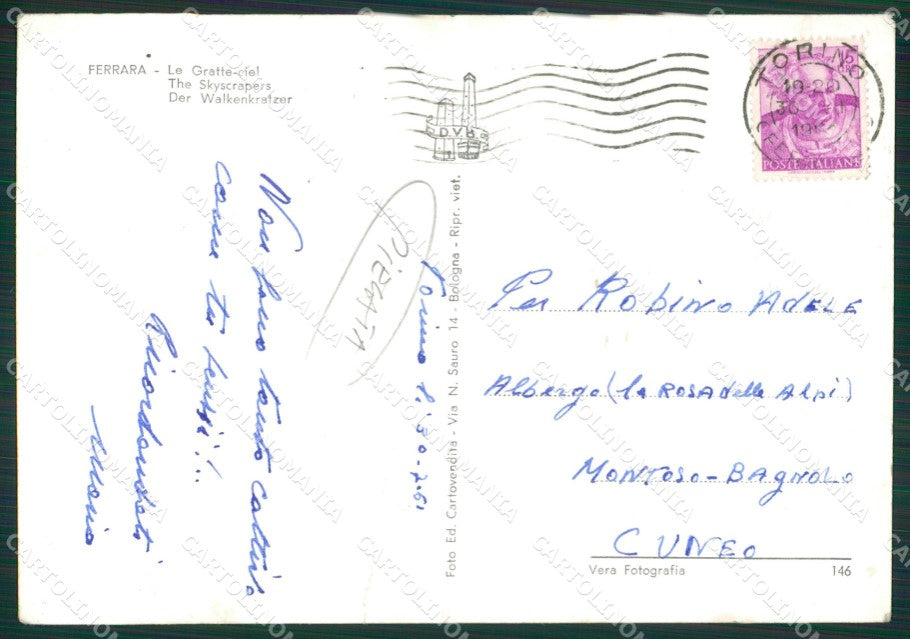 FERRARA - Le Gratte-ciel
The Skyscrapers
Der Walkenkratzer
D.V.B.
TORINO
19-20
30
POSTE ITALIANE
Non sono tanto cattivo
come tu pensi!..
Ricordandoti
Mario
PIEGATA
Torino li 30-7-61
Foto Ed. Cartovendita - Via N. Sauro 14 - Bologna - Ripr. viet.
Per Robino Adele
Albergo (la Rosa delle Alpi)
Montoso - Bagnolo
CUNEO
Vera Fotografia 146
CARTOLINOMANIA